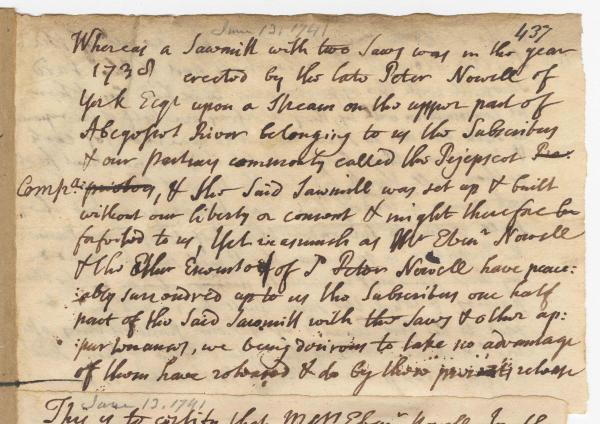 June 13, 1741
437
Whereas a Sawmill with two Saws was in the year
1738 erected by the late Peter Nowell of
York Esqr upon a Stream on the upper part of
River belonging to us the Subscribers
& our Partners commonly called the Pejepscot
Compa. & the Said Sawmill was set up & built
without our liberty or consent & might therefore be
forfeited to us, Yet inasmuch as Mr Ebenr Nowell
& the Other of Peter Nowell have peace:
:ably surrendred up to us the Subscribers one half
part of the Said Sawmill with the Saws & other ap:
purtenances, we being desirous to take no advantage
of them have released & do by these presents release
June 13, 1741
This is to certify that Ebenr